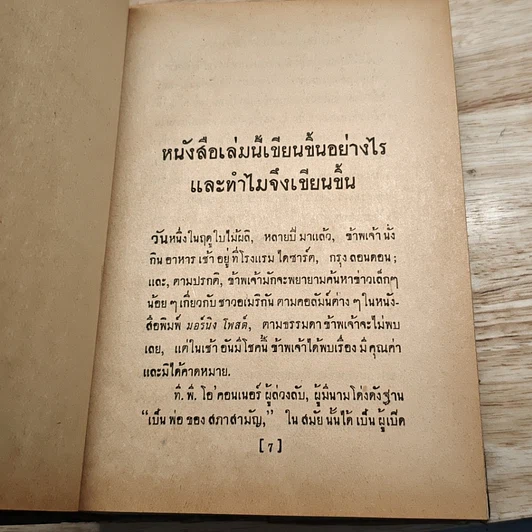 หนังสือเล่มนี้เขียนขึ้นอย่างไร
และทำไมจึงเขียนขึ้น
วันหนึ่งในฤดูใบไม้ผลิ, หลายปีมาแล้ว, ข้าพเจ้านั่ง
กินอาหารเช้าอยู่ที่โรงแรมไดซาร์ต, กรุงลอนดอน;
และ, ตามปรกติ, ข้าพเจ้ามักจะพยายามค้นหาข่าวเล็กๆ
น้อยๆ เกี่ยวกับชาวอเมริกันตามคอลัมน์ต่างๆ ในหนัง-
สือพิมพ์ มอร์นิง โพสต์, ตามธรรมดาข้าพเจ้าจะไม่พบ
เลย, แต่ในเช้าอันมีโชคนี้ ข้าพเจ้าได้พบเรื่องมีคุณค่า
และมิได้คาดหมาย.
ที. พี. โอ'คอนเนอร์ ผู้ล่วงลับ, ผู้มีนามโด่งดังฐาน
“เป็นพ่อของสภาสามัญ,” ในสมัยนั้นได้เป็นผู้เปิด
[ 7 ]